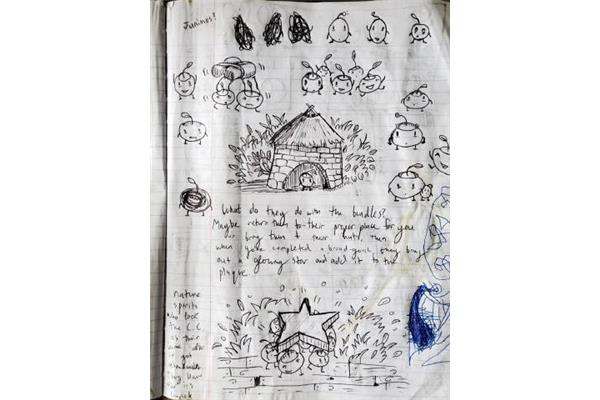 Juninos!
What do they do with the bundles?
Maybe return them to their proper place for you
bring them to their huts, then
when you've completed a brand-goal they bring
out a glowing star and add it to the
plaque.
Nature
spirits
who took
the C.C.
as their
got
They have